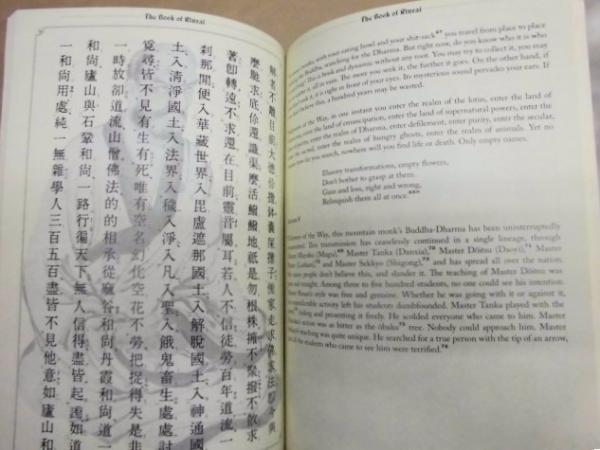 The Book of Rinzai
解者不離目前大德儞擔鉢囊屎擔子傍家走求佛求法即今與
麼馳求底儞還識渠麼活鱍鱍地祇是勿根株擁不聚撥不散求
著即轉遠不求還在目前靈音屬耳若人不信徒勞百年道流一
刹那間便入華藏世界入毘盧遮那國土入解脫國土入神通國
土入淸淨國土入法界入穢入淨入凡入聖入餓鬼畜生處處討
覓尋皆不見有生有死唯有空名幻化空花不勞把捉得失是非
一時放却道流山僧佛法的的相承從麻谷和尚丹霞和尚道一
和尚廬山與石鞏和尚一路行徧天下無人信得盡皆起謗如道
一和尚用處純一無雜學人三百五百盡皆不見他意如廬山和
The Book of Rinzai
monks, with your eating bowl and your shit-sack⁶⁷ you travel from place to place
Buddha, searching for the Dharma. But right now, do you know who it is who
thing? This is bold and dynamic without any root. You may try to collect it, you may
all in vain. The more you seek it, the further it goes. On the other hand, if
it, it is right in front of your eyes. Its mysterious sound pervades your ears. If
believe this, a hundred years may be wasted.
of the Way, in one instant you enter the realm of the lotus, enter the land of
enter the land of emancipation, enter the land of supernatural powers, enter the
enter the realm of Dharma, enter defilement, enter purity, enter the secular,
sacred, enter the realm of hungry ghosts, enter the realm of animals. Yet no
you search, nowhere will you find life or death. Only empty names.
Illusory transformations, empty flowers,
Don't bother to grasp at them.
Gain and loss, right and wrong,
Relinquish them all at once.
of the Way, this mountain monk's Buddha-Dharma has been uninterruptedly
This transmission has ceaselessly continued in a single lineage, through
Mayoku (Magu), Master Tanka (Danxia), Master Dōitsu (Daoyi), Master
and Master Sekkyo (Shigong), and has spread all over the nation.
people don't believe this, and slander it. The teaching of Master Dōitsu was
Among three to five hundred students, no one could see his intention.
style was free and genuine. Whether he was going with it or against it,
activity left his students dumbfounded. Master Tanka played with the
hiding and presenting it freely. He scolded everyone who came to him. Master
was as bitter as the ōbaku tree. Nobody could approach him. Master
teaching was quite unique. He searched for a true person with the tip of an arrow,
the students who came to see him were terrified.